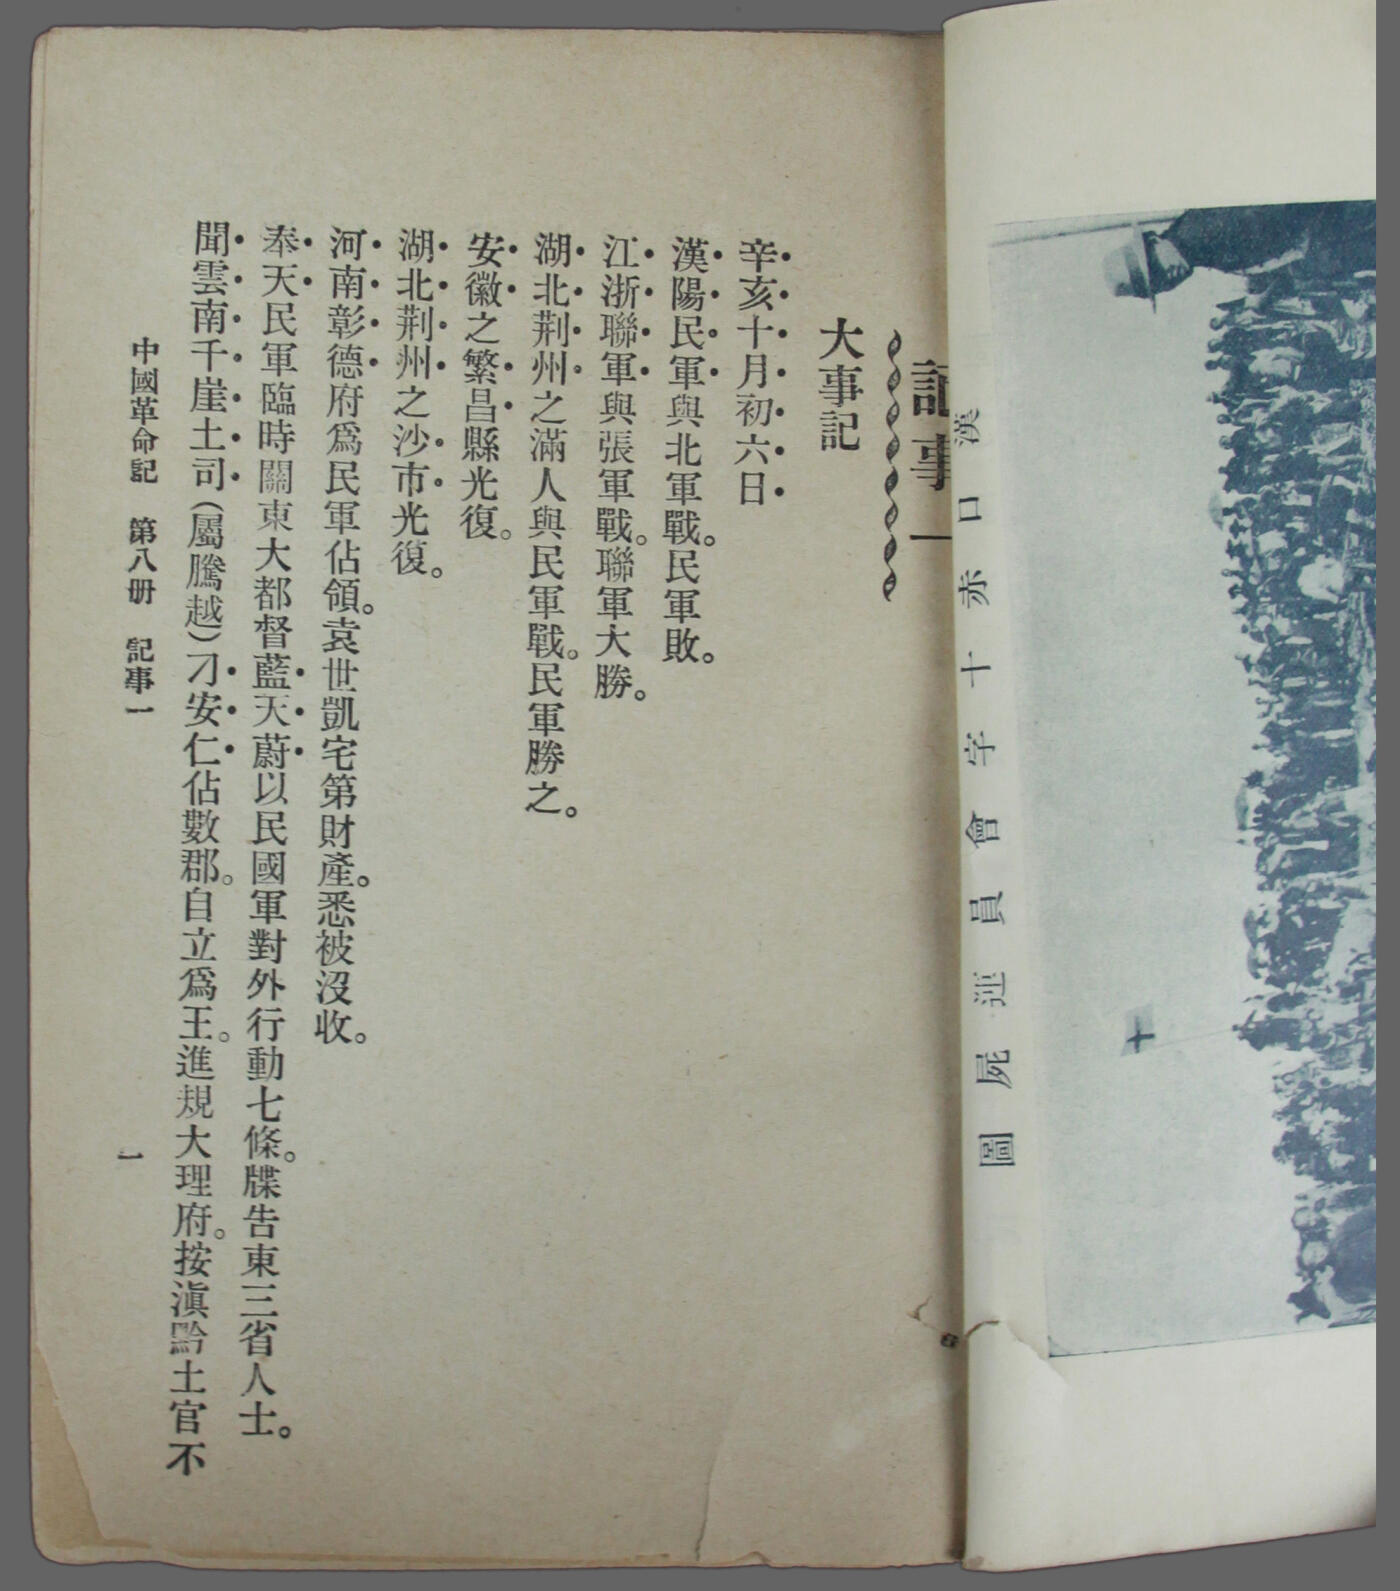 漢口赤十字會員運屍圖
記事一
大事記
辛亥十月初六日
漢陽民軍與北軍戰。民軍敗。
江浙聯軍與張軍戰。聯軍大勝。
湖北荆州之滿人與民軍戰。民軍勝之。
安徽之繁昌縣光復。
湖北荆州之沙市光復。
河南彰德府爲民軍佔領。袁世凱宅第財產。悉被沒收。
奉天民軍臨時關東大都督藍天蔚以民國軍對外行動七條。牒告東三省人士。
聞雲南千崖土司(屬騰越)刁安仁佔數郡。自立爲王。進規大理府。按滇黔土官不
中國革命記 第八册 記事一 一